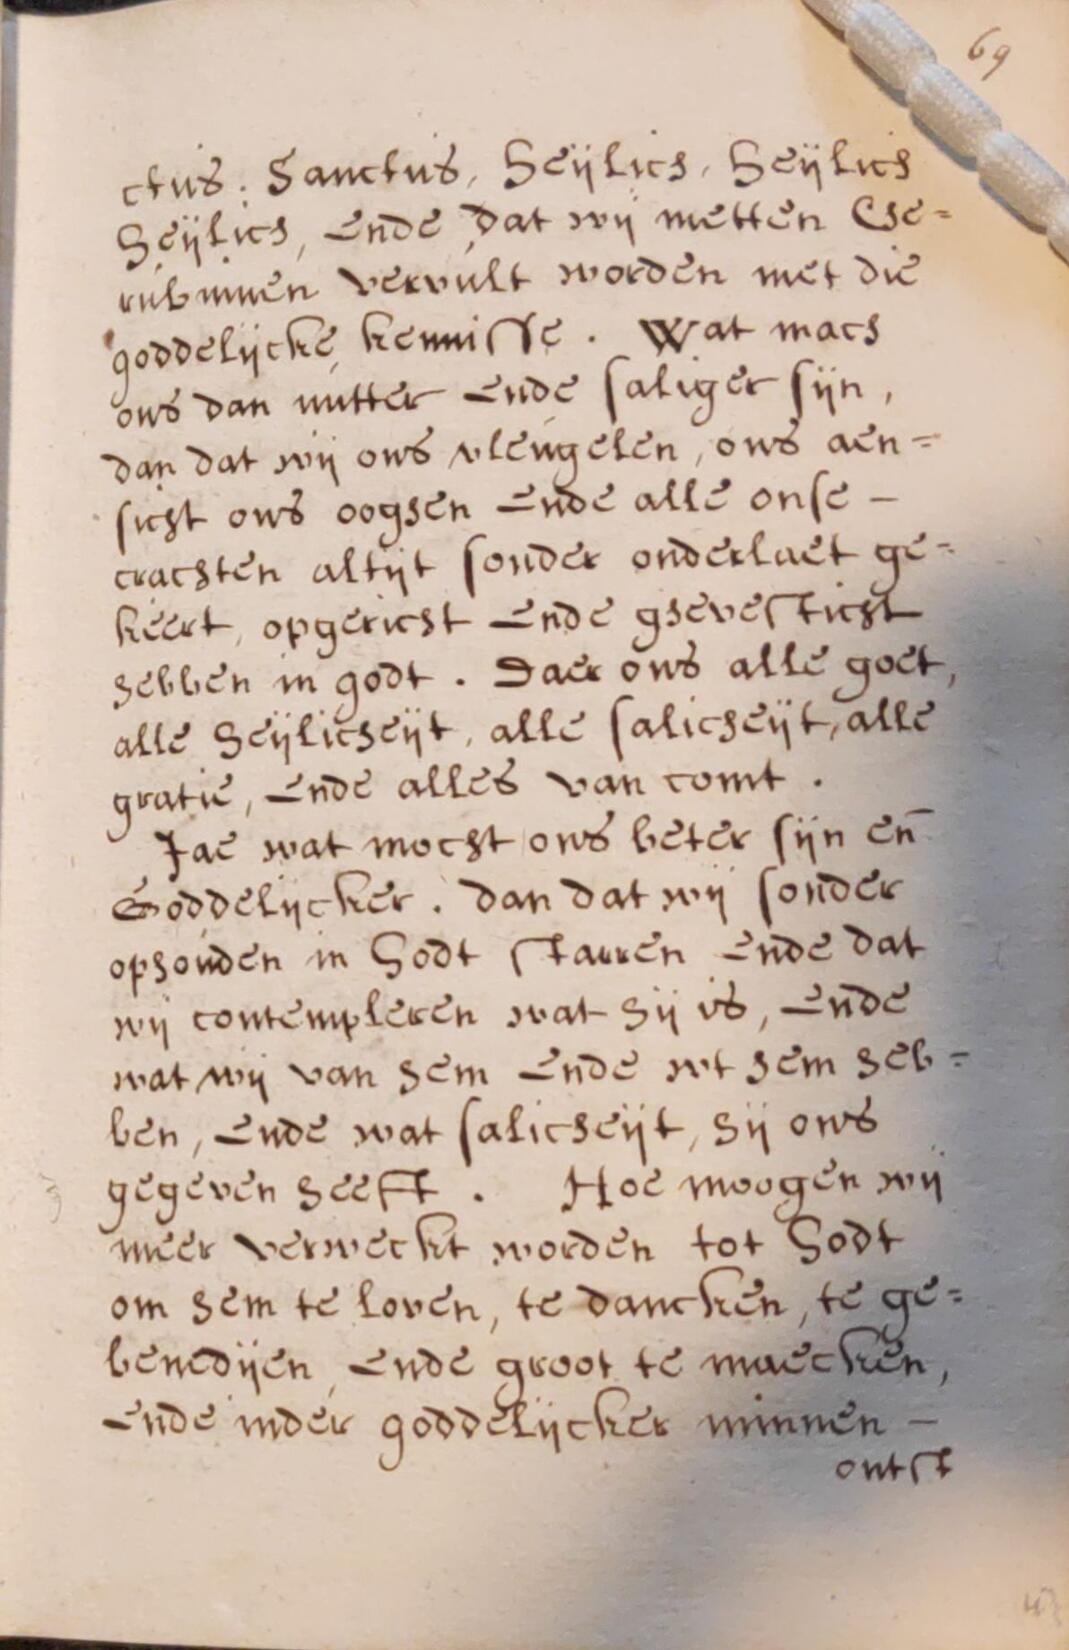 69
ctus. Sanctus, Heÿlich, Heÿlich
Heÿlich, ende dat wij metten Che=
rubinnen vervult worden met die
goddelijcke kennisse. Wat mach
ons dan nutter ende saliger sijn,
dan dat wij ons vleugelen, ons aen=
sicht ons ooghen ende alle onse –
crachten altijt sonder onderlaet ge=
keert, opgericht ende ghevesticht
hebben in godt. Daer ons alle goet,
alle heÿlicheÿt, alle salicheÿt, alle
gratie, ende alles van comt.
Jae wat mocht ons beter sijn en̄
Goddelijcker. dan dat wij sonder
ophouden in Godt starren ende dat
wij contempleren wat hij is, ende
wat wij van hem ende wt hem heb=
ben, ende wat salicheÿt, hij ons
gegeven heeft. Hoe moogen wij
meer verweckt worden tot Godt
om hem te loven, te dancken, te ge=
benedijen, ende groot te maecken,
ende inder goddelijcker minnen –
ontst